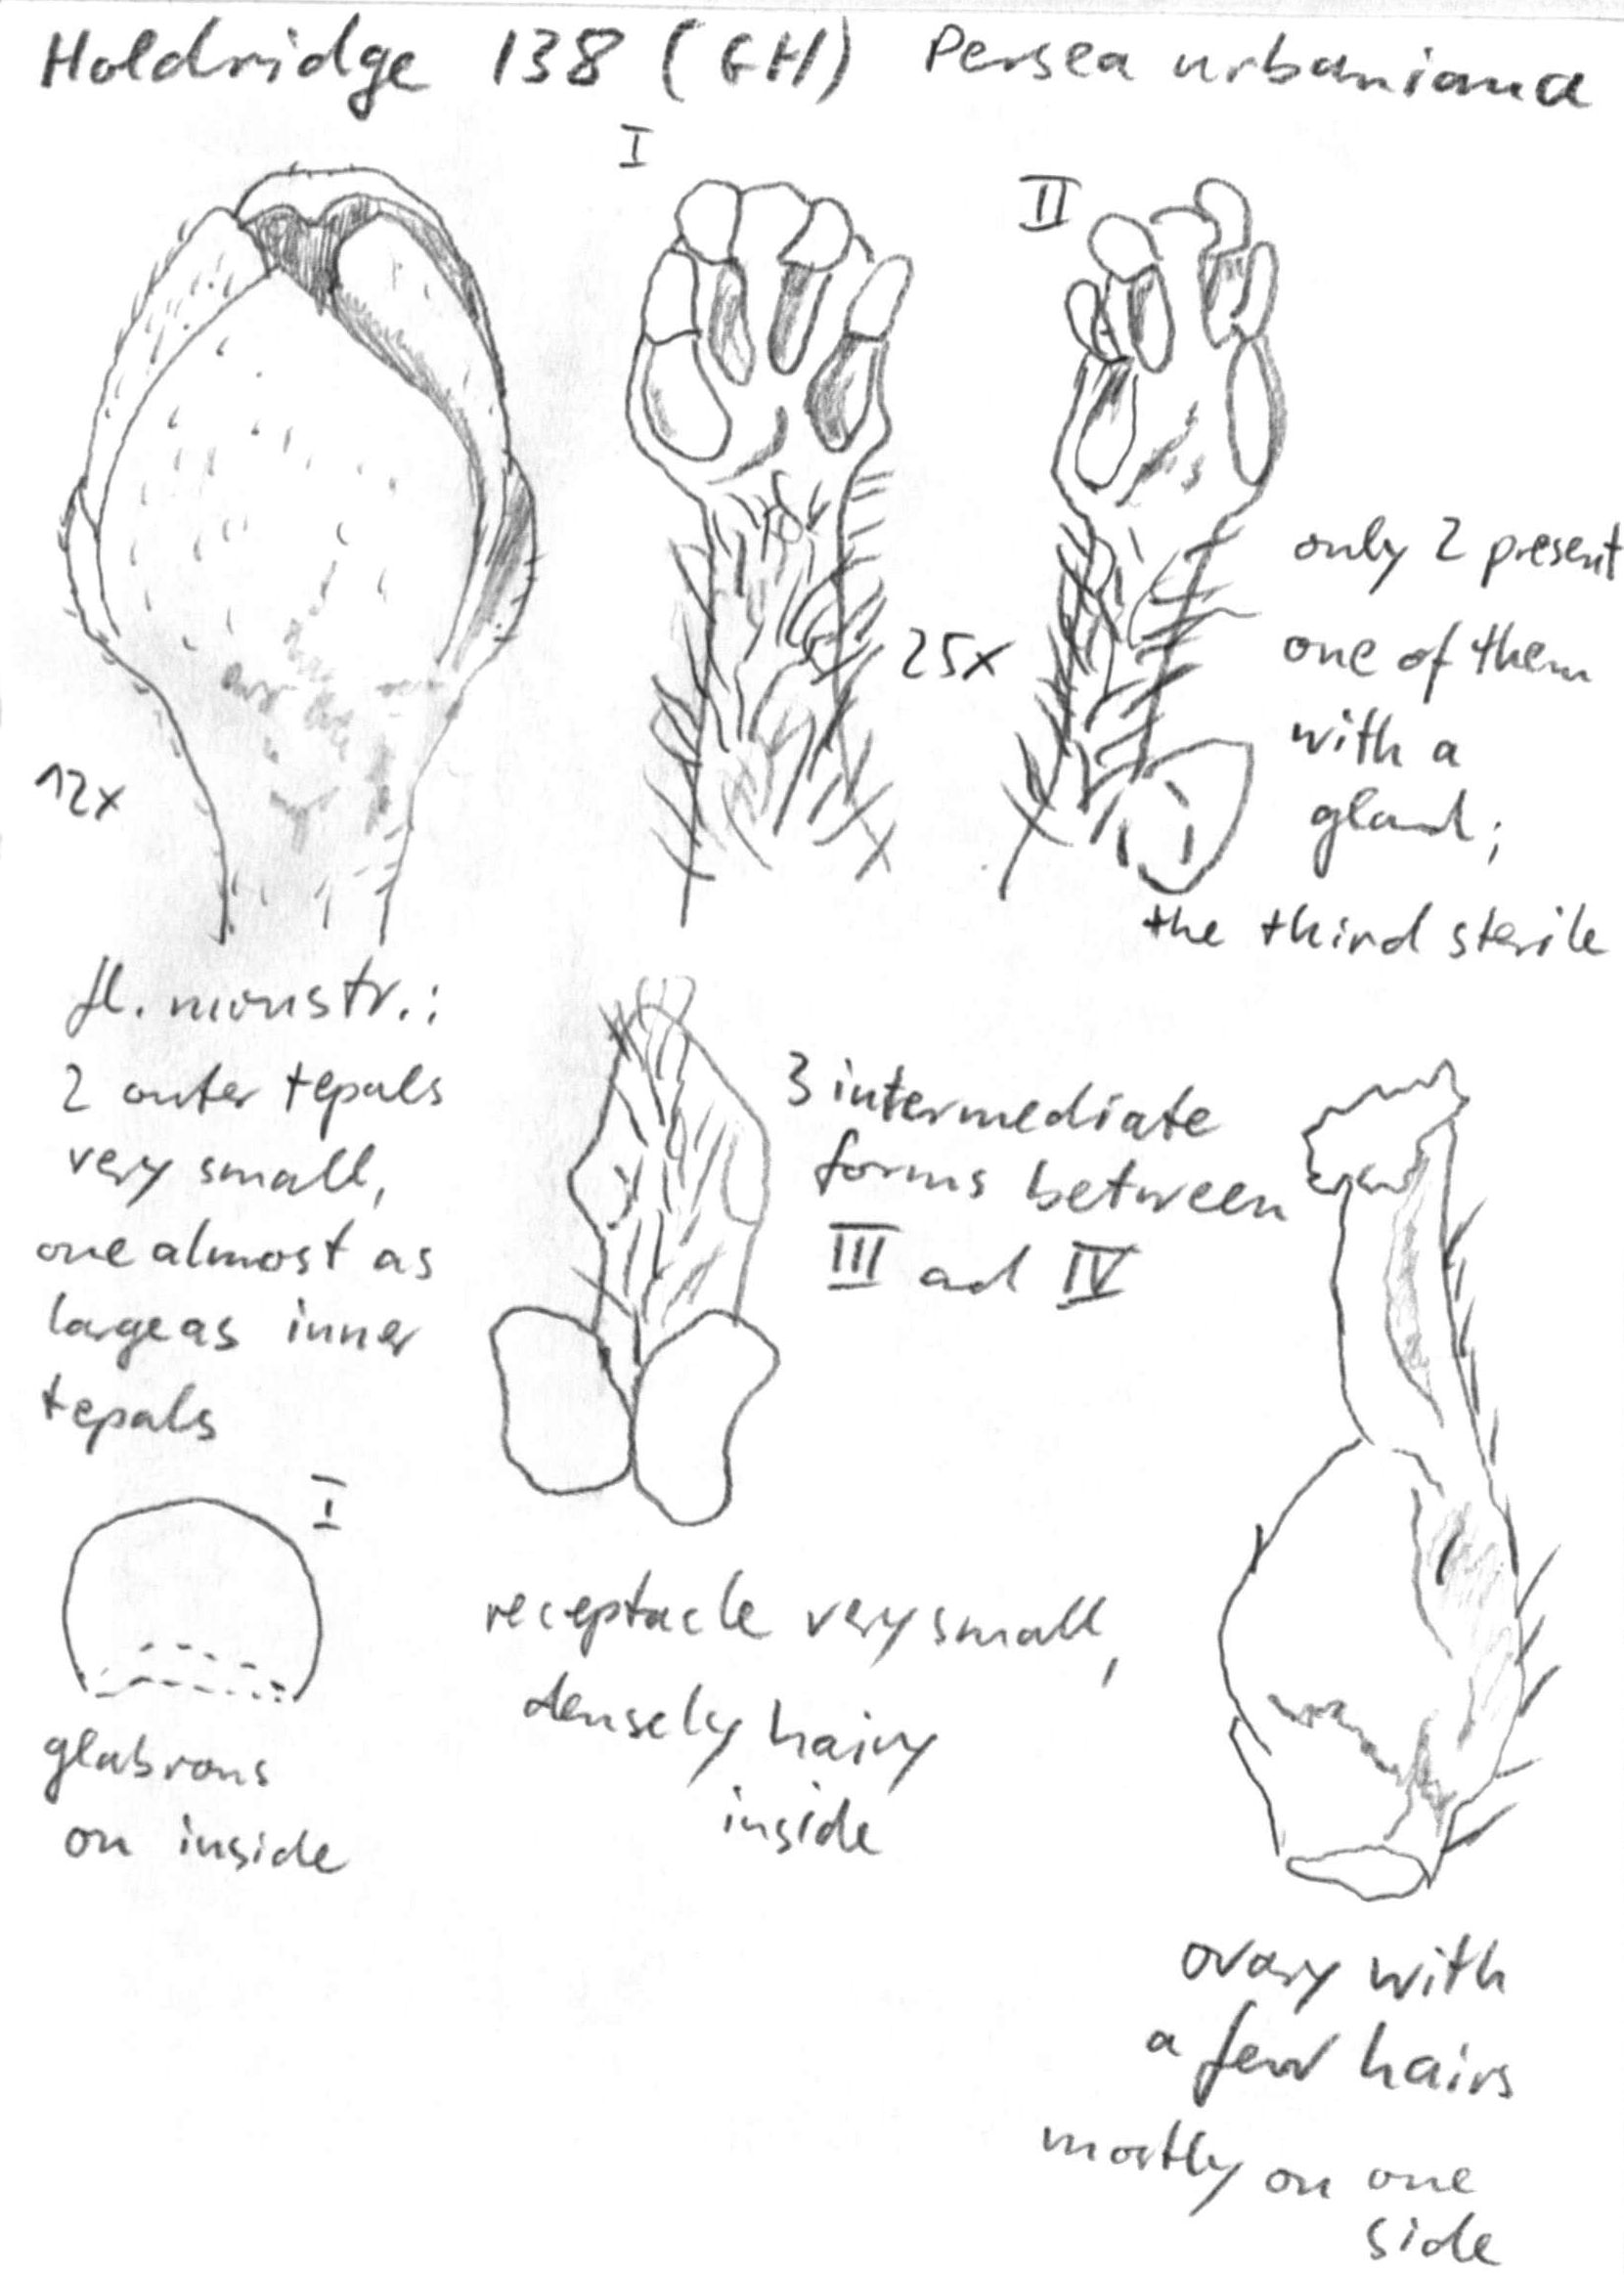 Holdridge 138 (GH) Persea urbaniana
I
II
25x
only 2 present
one of them
with a
gland;
the third sterile
12x
fl. monstr.:
2 outer tepals
very small,
one almost as
large as inner
tepals
3 intermediate
forms between
III ad IV
I
glabrous
on inside
receptacle very small,
densely hairy
inside
ovary with
a few hairs
mostly on one
side